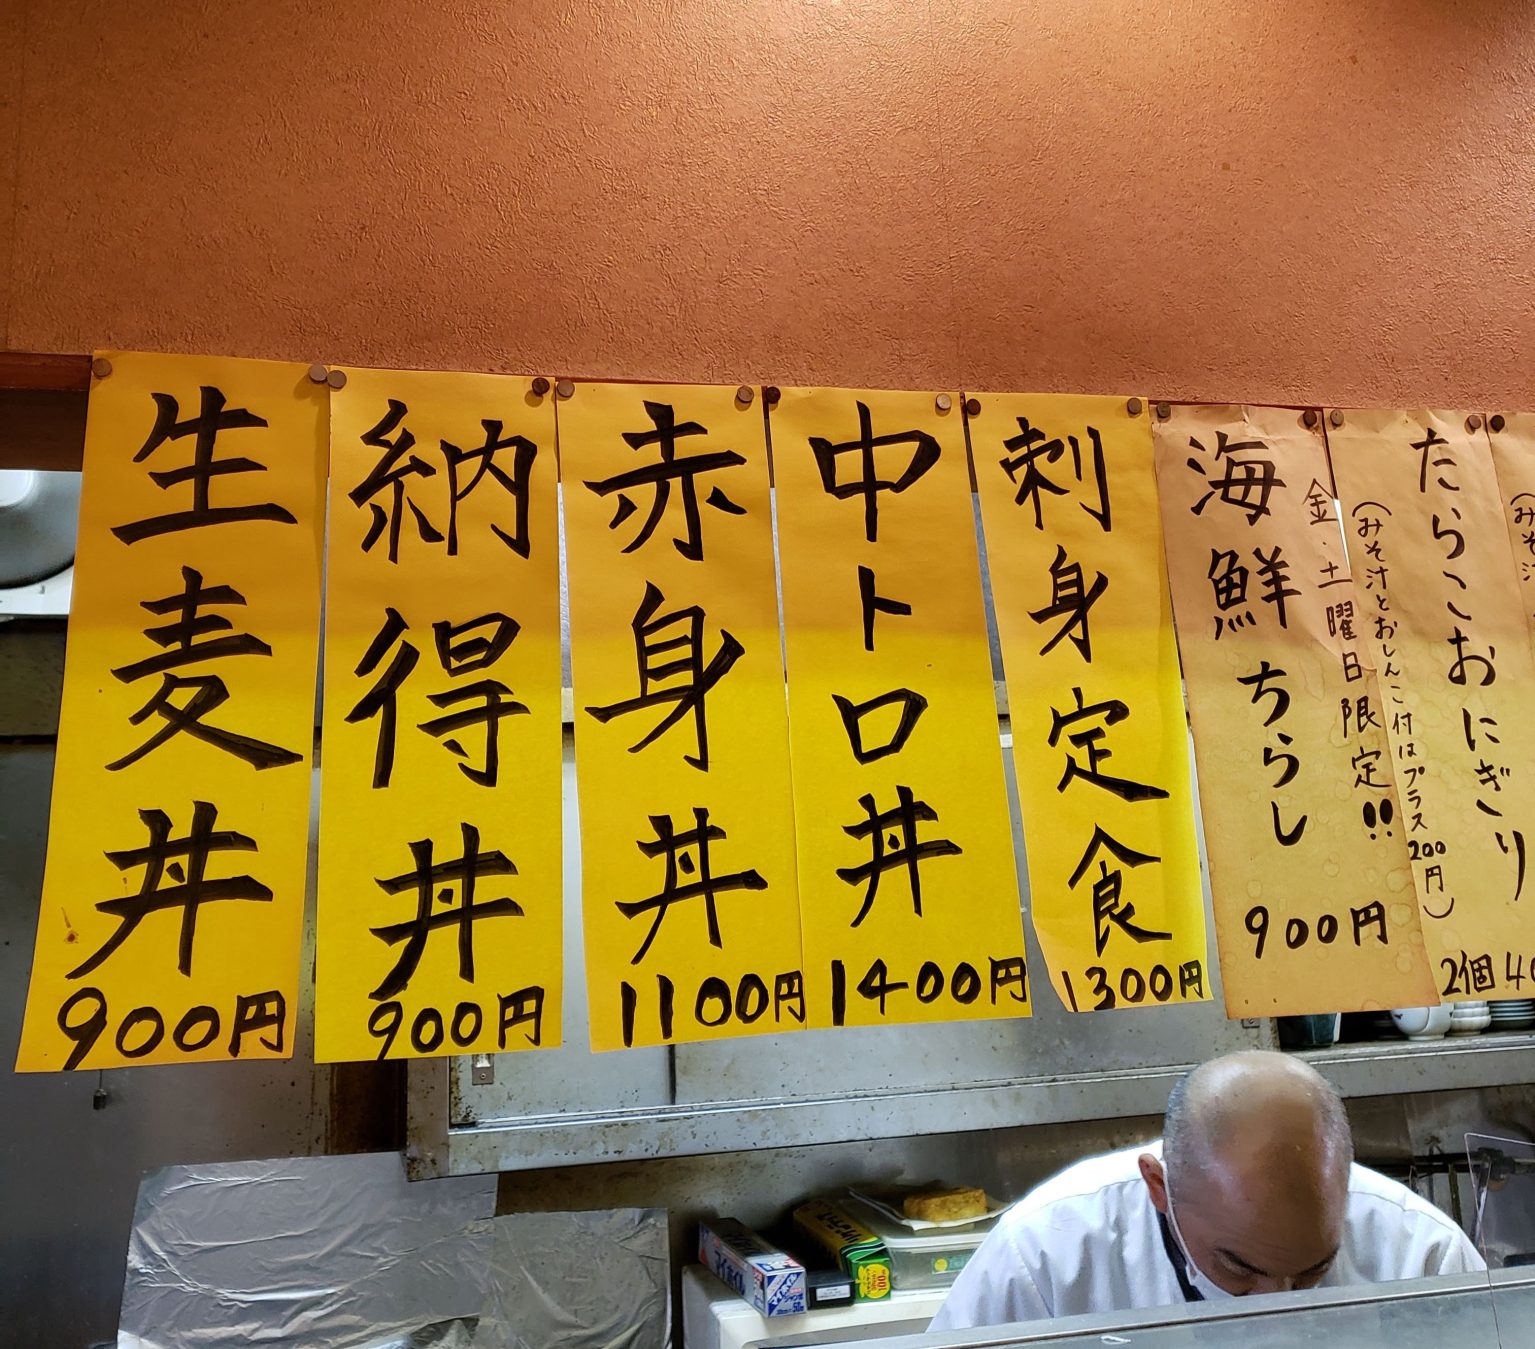 生麦丼
900円
納得丼
900円
赤身丼
1100円
中トロ丼
1400円
刺身定食
1300円
海鮮ちらし
金・土曜日限定!!
900円
たらこおにぎり
(みそ汁とおしんこ付はプラス200円)
2個40
(みそ汁
マイホイル